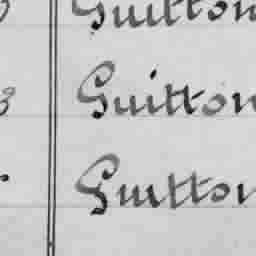 Guitton
3 Guitton
Guitton